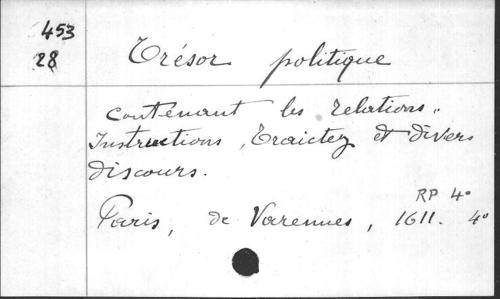 453
28
Trésor politique
contenant les relations..
Instructions, Traictez et divers
discours.
RP 4°
Paris, de Varennes, 1611. 4°